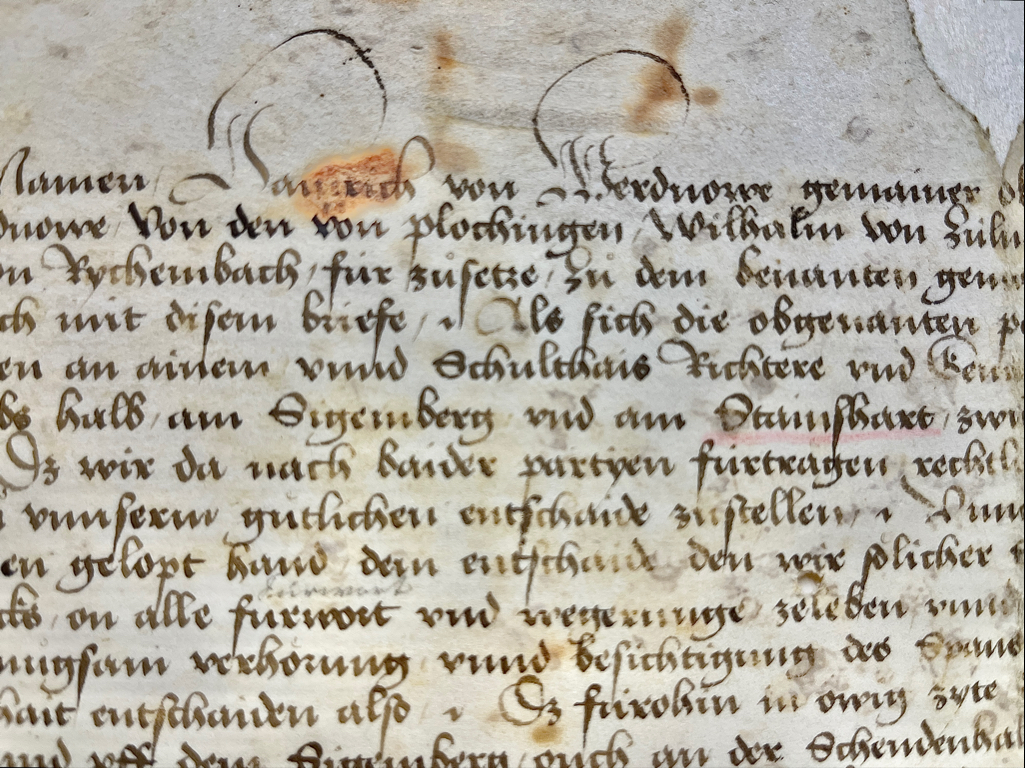 Namen Hainrich von Werdnowe gemainer
dnowe Von den von plochingen Wilhalm von
Rychembach für zůsetze zů dem benanten
ch mit disem briefe Als sich die obgenanten
en an ainem vnnd Schulthais Richtere vnd
halb am Sigemberg vnd am Stainshart
Dz wir da nach baider partyen fürtragen
vnnserm gütlichen entschaide zůstellen
en gelopt hand dem entschaide den wir sölicher
on alle fürwort vnd wegerunge zeleben vnnd
fürwort
nugsam verhörung vnnd besichtigung des Spans
hait entschaiden also Dz fürohin in ewig zyte
vnd vff dem Sigemberg ouch an der